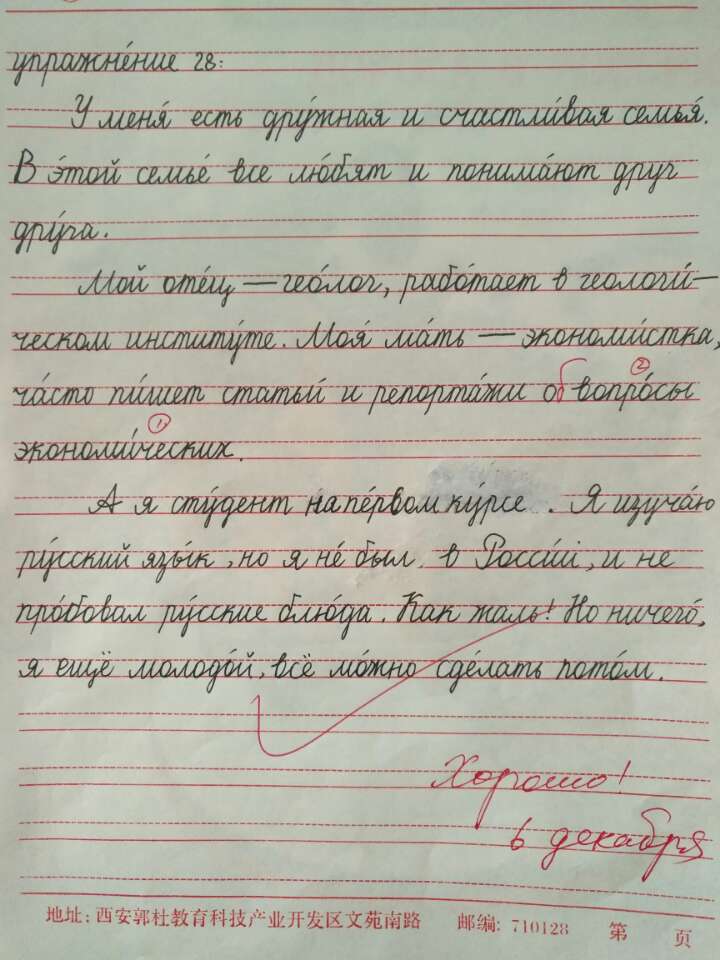 упражне́ние 28:
У меня́ есть дру́жная и счастли́вая семья́.
В э́той семье́ все лю́бят и понима́ют друг
дру́га.
Мой оте́ц — гео́лог, рабо́тает в геологи́-
ческом институ́те. Моя́ ма́ть — экономи́стка,
ча́сто пи́шет статьи́ и репорта́жи об вопро́сы ②
экономи́ческих. ①
А я сту́дент на пе́рвом ку́рсе. Я изуча́ю
ру́сский язы́к, но я не́ был в Росси́и, и не
про́бовал ру́сские блю́да. Как жаль! Но ничего́,
я ещё молодо́й, всё мо́жно сде́лать пото́м.
Хорошо!
6 декабря
地址: 西安郭杜教育科技产业开发区文苑南路 邮编: 710128 第 页